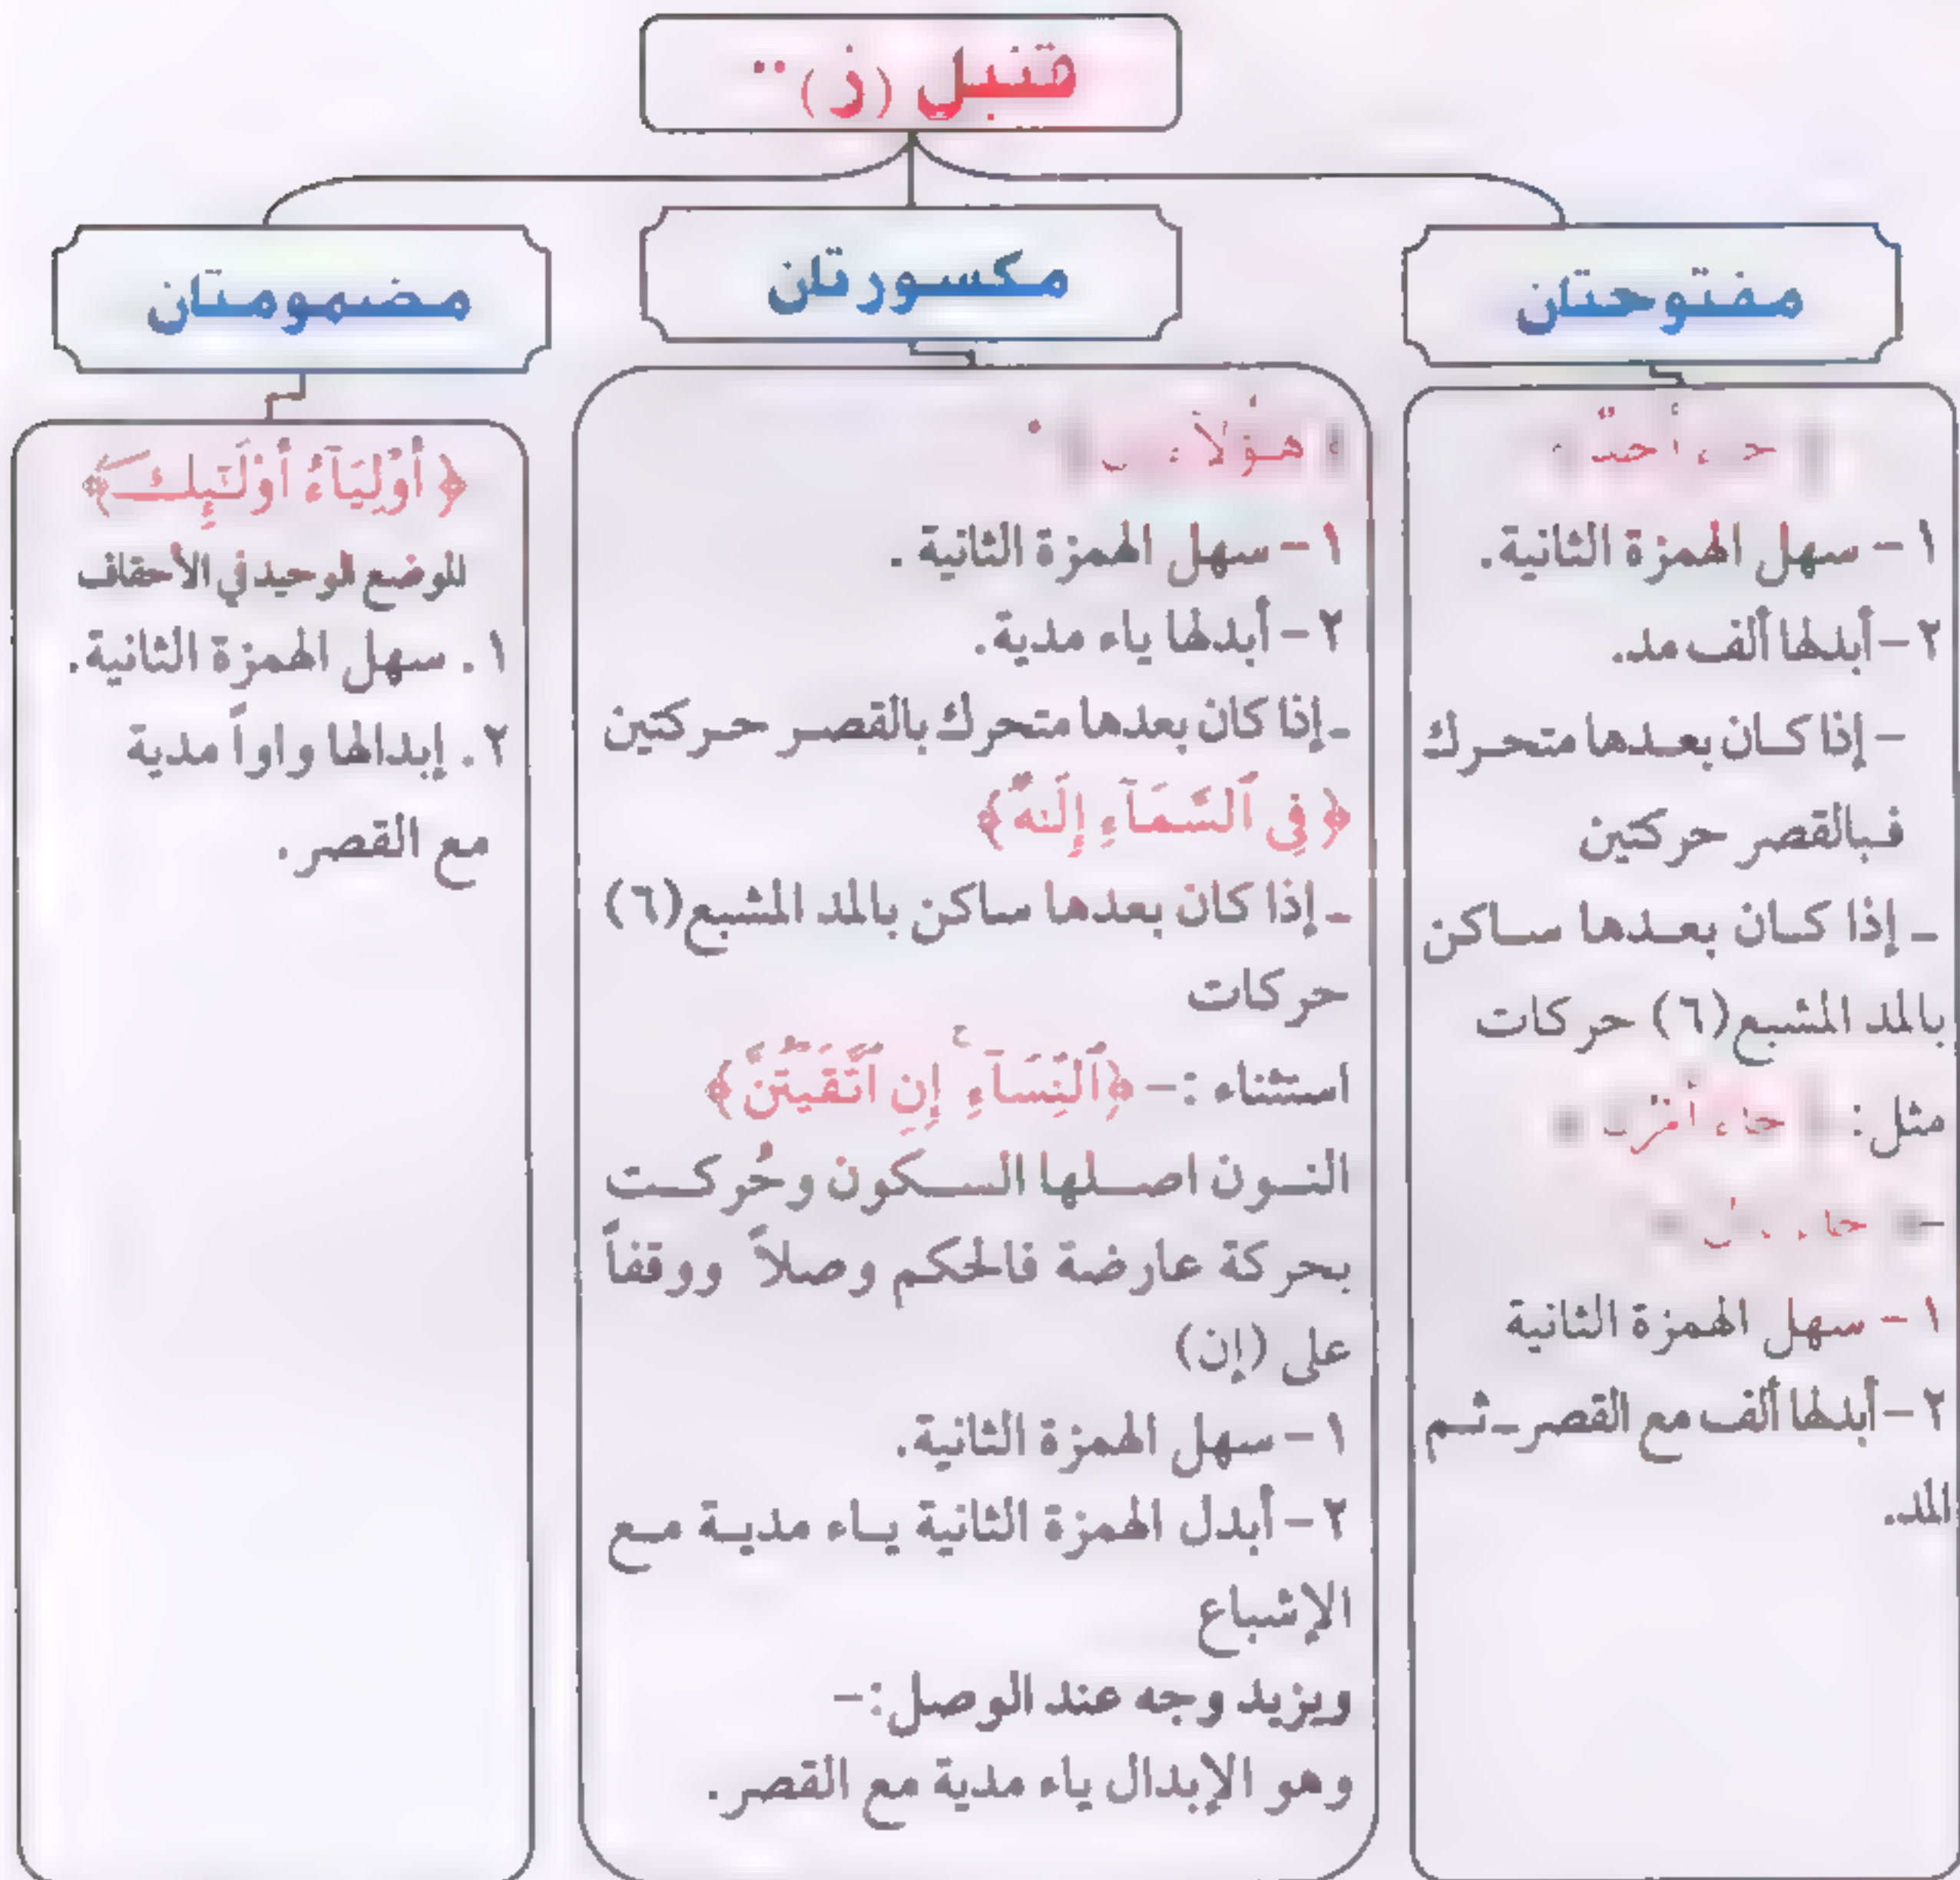 قنبل (ز)
مفتوحتان
مكسورتان
مضمومتان
١- سهل الهمزة الثانية.
٢- أبدلها ألف مد.
- إذا كان بعدها متحرك
فبالقصر حركتين
- إذا كان بعدها ساكن
بالمد المشبع (٦) حركات
مثل:
١- سهل الهمزة الثانية
٢- أبدلها ألف مع القصر ثم
المد.
هؤلاء
١- سهل الهمزة الثانية.
٢- أبدلها ياء مدية.
- إذا كان بعدها متحرك بالقصر حركتين
﴿فِى ٱلسَّمَآءِ إِلَٰهٌ﴾
- إذا كان بعدها ساكن بالمد المشبع (٦)
حركات
استثناء :- ﴿ٱلنِّسَآءِ إِنِ ٱتَّقَيْتُنَّ﴾
النون اصلها السكون وحُركت
بحركة عارضة فالحكم وصلاً ووقفاً
على (إن)
١- سهل الهمزة الثانية.
٢- أبدل الهمزة الثانية ياء مدية مع
الإشباع
ويزيد وجه عند الوصل:-
وهو الإبدال ياء مدية مع القصر.
﴿أَوْلِيَآءُ أُوْلَٰٓئِكَ﴾
الموضع الوحيد في الأحقاف
١. سهل الهمزة الثانية.
٢. إبدالها واواً مدية
مع القصر.